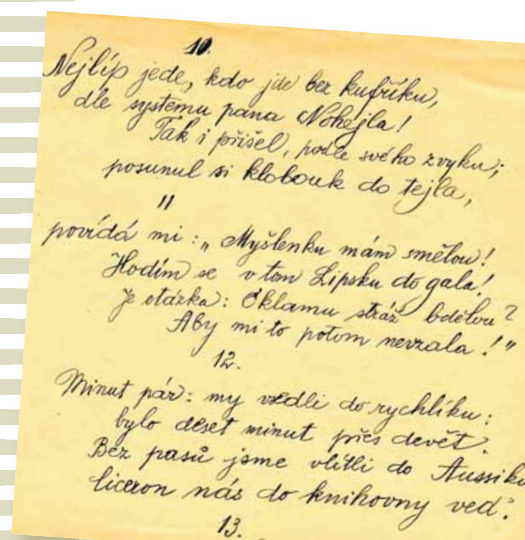 10.
Nejlíp jede, kdo jde bez kufříku,
dle systemu pana Nohejla!
Tak i přišel, podle svého zvyku;
posunul si klobouk do tejla,
11
povídá mi: „Myšlenku mám smělou!
Hodím se v tom Lipsku do gala!
Je otázka: Oklamu stráž bdělou?
Aby mi to potom nevzala!"
12.
Minut pár: my vsedli do rychlíku:
bylo deset minut přes devět.
Bez pasů jsme vlítli do Aussiku
liceron nás do knihovny ved?
13.